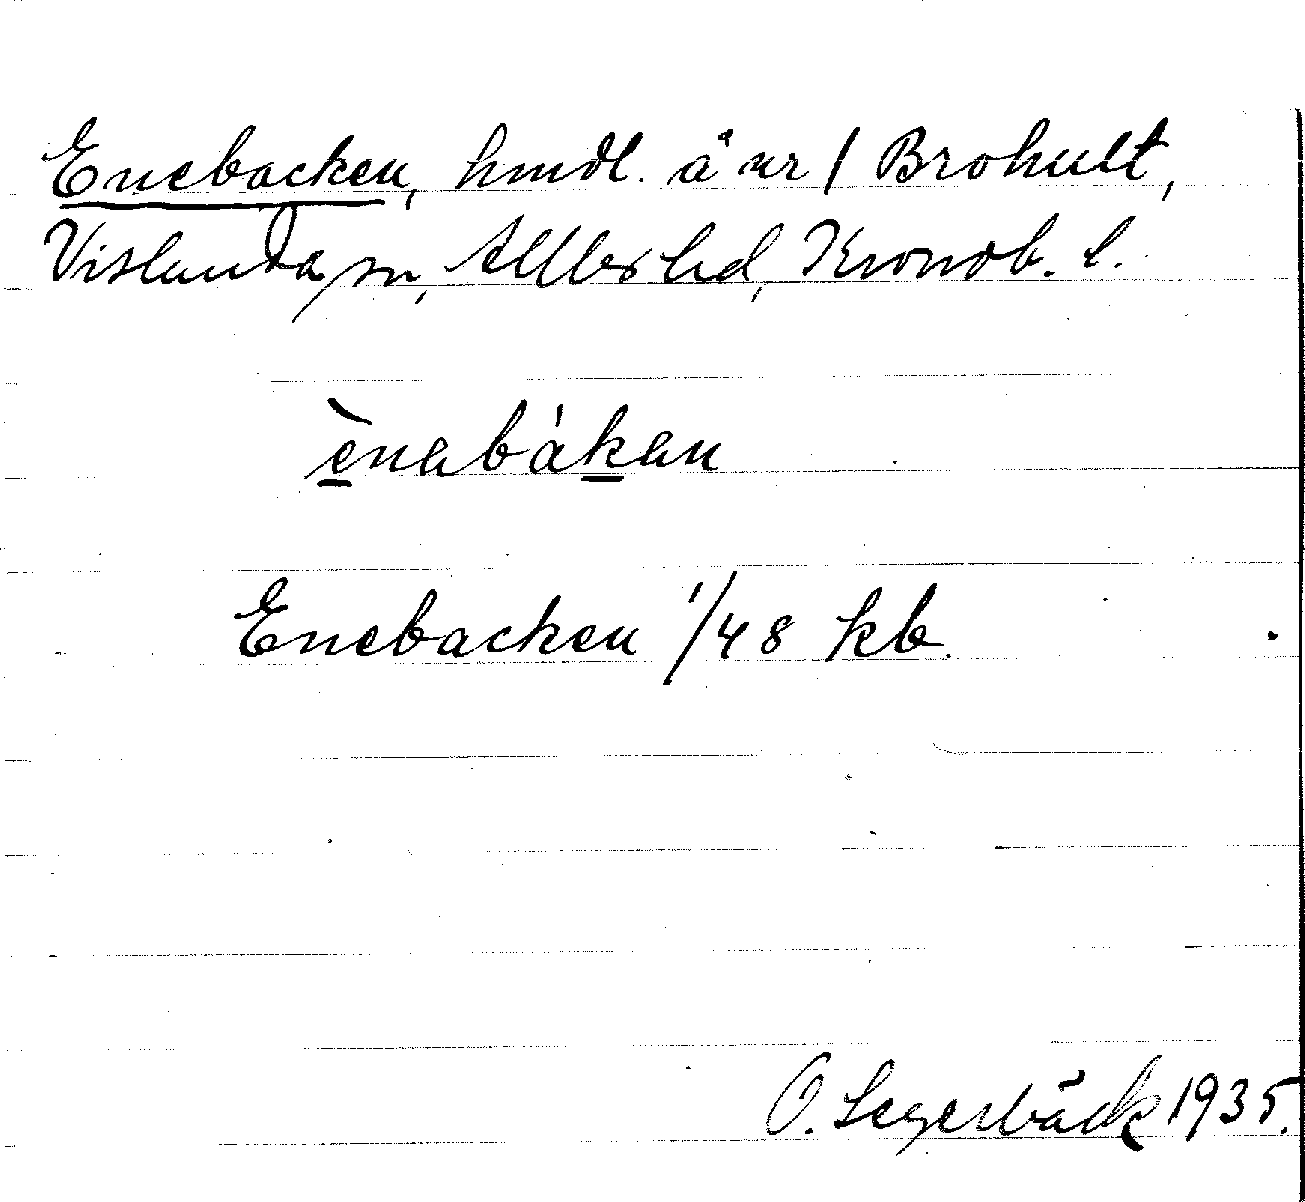 Enebacken, hmdl. å nr 1 Brohult,
Vislanda sn, Allbo hd, Kronob. l.
ènabákan
Enebacken 1/48 kb.
O. Segerbäck 1935.